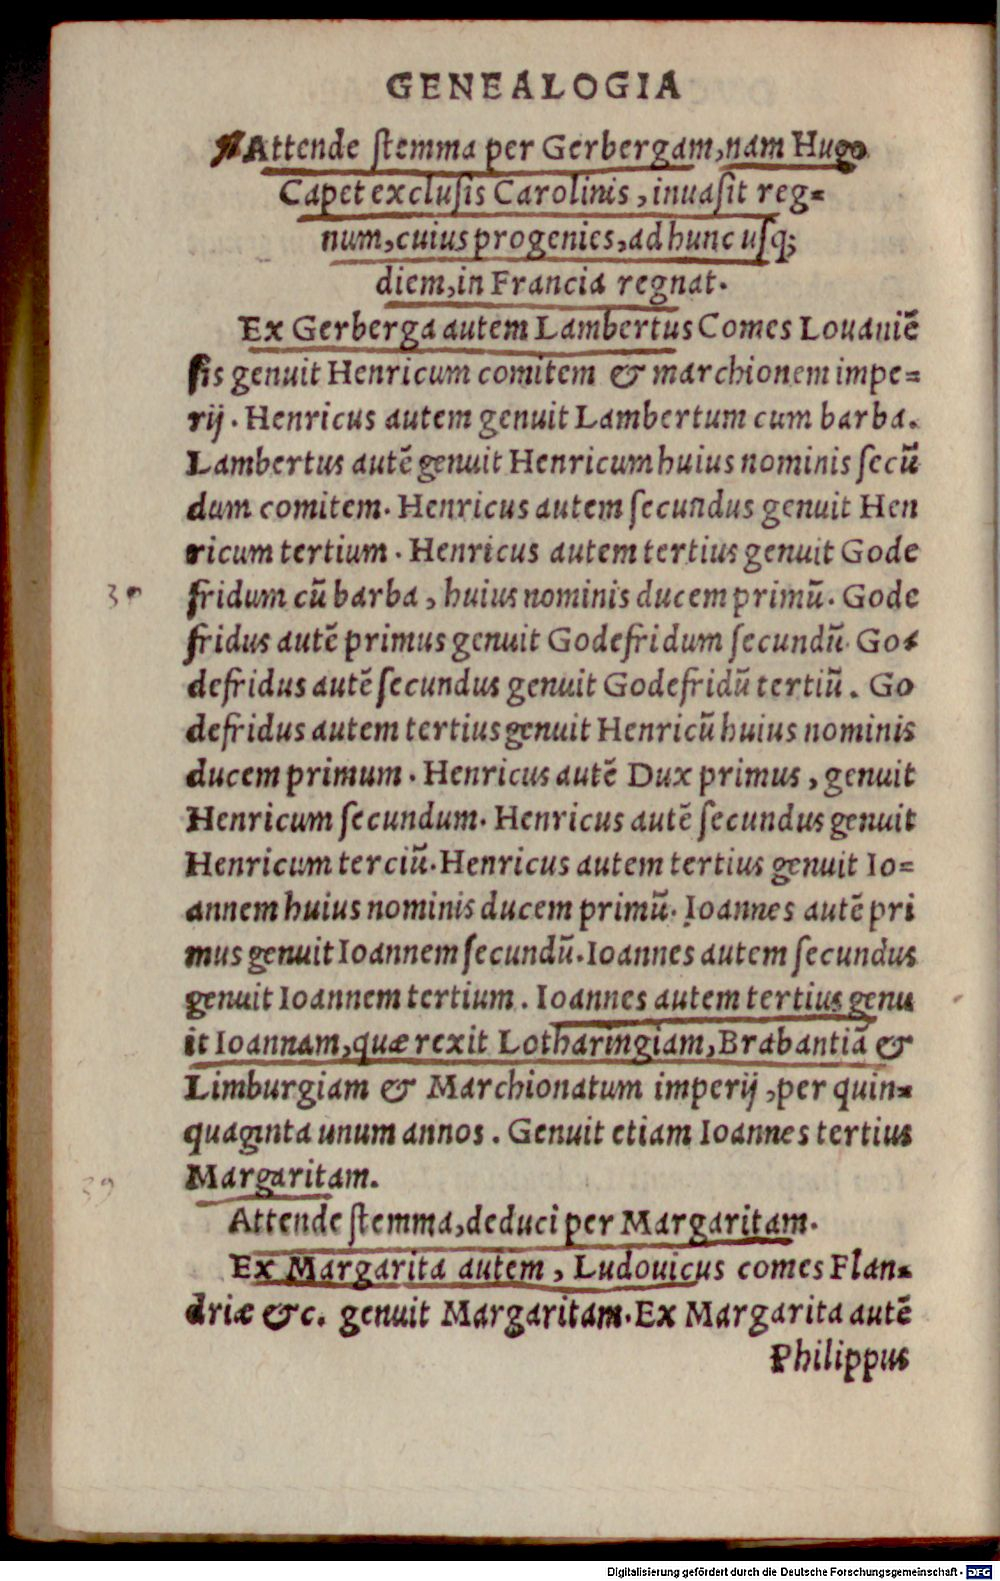 GENEALOGIA
Attende ſtemma per Gerbergam, nam Hugo
Capet excluſis Carolinis, inuaſit reg=
num, cuius progenies, ad hunc uſq;
diem, in Francia regnat.
Ex Gerberga autem Lambertus Comes Louaniē
ſis genuit Henricum comitem & marchionem impe=
rij. Henricus autem genuit Lambertum cum barba.
Lambertus autē genuit Henricum huius nominis ſecū
dum comitem. Henricus autem ſecundus genuit Hen
ricum tertium. Henricus autem tertius genuit Gode
fridum cū barba, huius nominis ducem primū. Gode
fridus autē primus genuit Godefridum ſecundū. Go=
defridus autē ſecundus genuit Godefridū tertiū. Go
defridus autem tertius genuit Henricū huius nominis
ducem primum. Henricus autē Dux primus, genuit
Henricum ſecundum. Henricus autē ſecundus genuit
Henricum terciū. Henricus autem tertius genuit Io=
annem huius nominis ducem primū. Ioannes autē pri
mus genuit Ioannem ſecundū. Ioannes autem ſecundus
genuit Ioannem tertium. Ioannes autem tertius genu
it Ioannam, quæ rexit Lotharingiam, Brabantiā &
Limburgiam & Marchionatum imperij, per quin=
quaginta unum annos. Genuit etiam Ioannes tertius
39
Margaritam.
Attende ſtemma, deduci per Margaritam.
Ex Margarita autem, Ludouicus comes Flan=
driæ &c. genuit Margaritam. Ex Margarita autē
Philippus
Digitalisierung gefördert durch die Deutsche Forschungsgemeinschaft - DFG